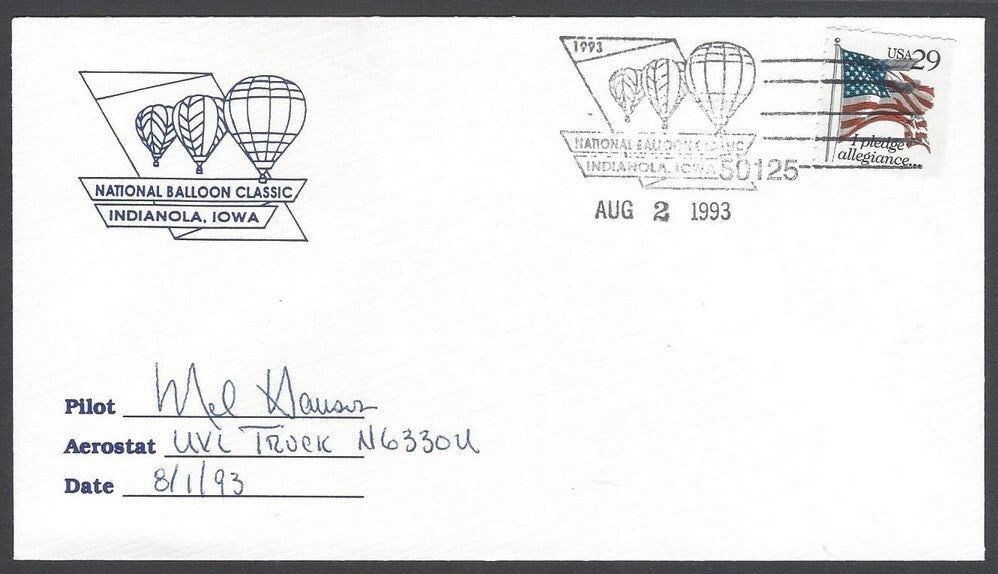 NATIONAL BALLOON CLASSIC
INDIANOLA, IOWA
1993
NATIONAL BALLOON CLASSIC
INDIANOLA, IOWA 50125
AUG 2 1993
USA 29
I pledge
allegiance...
Pilot Mel Hansen
Aerostat UVL TRUCK N6330U
Date 8/1/93